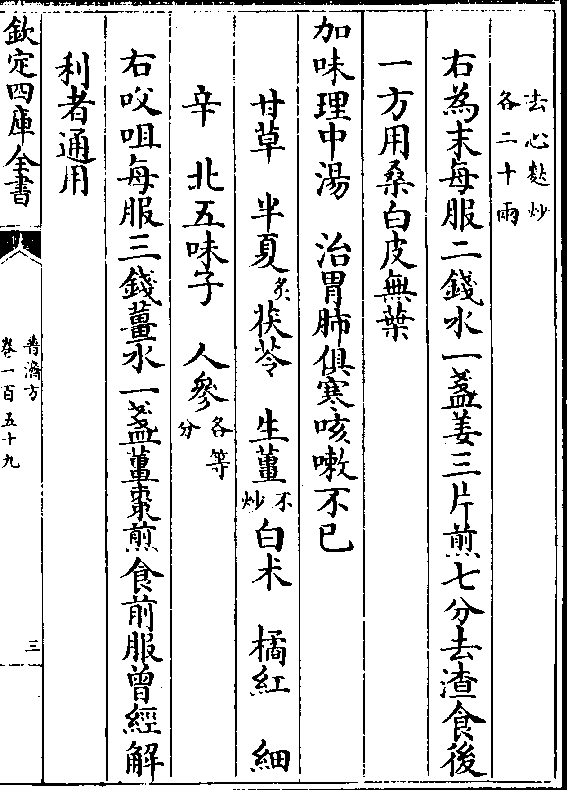 去心麩炒
各二十兩
右為末每服二錢水一盞姜三片煎七分去渣食後
一方用桑白皮無葉
加味理中湯　治胃肺俱寒咳嗽不已
甘草　半夏炙茯苓　生薑不炒白术　橘紅　細
辛　北五味子　人參各等分
右㕮咀每服三錢薑水一盞薑棗煎食前服曾經解
利者通用
欽定四庫全書
普濟方
卷一百五十九
三